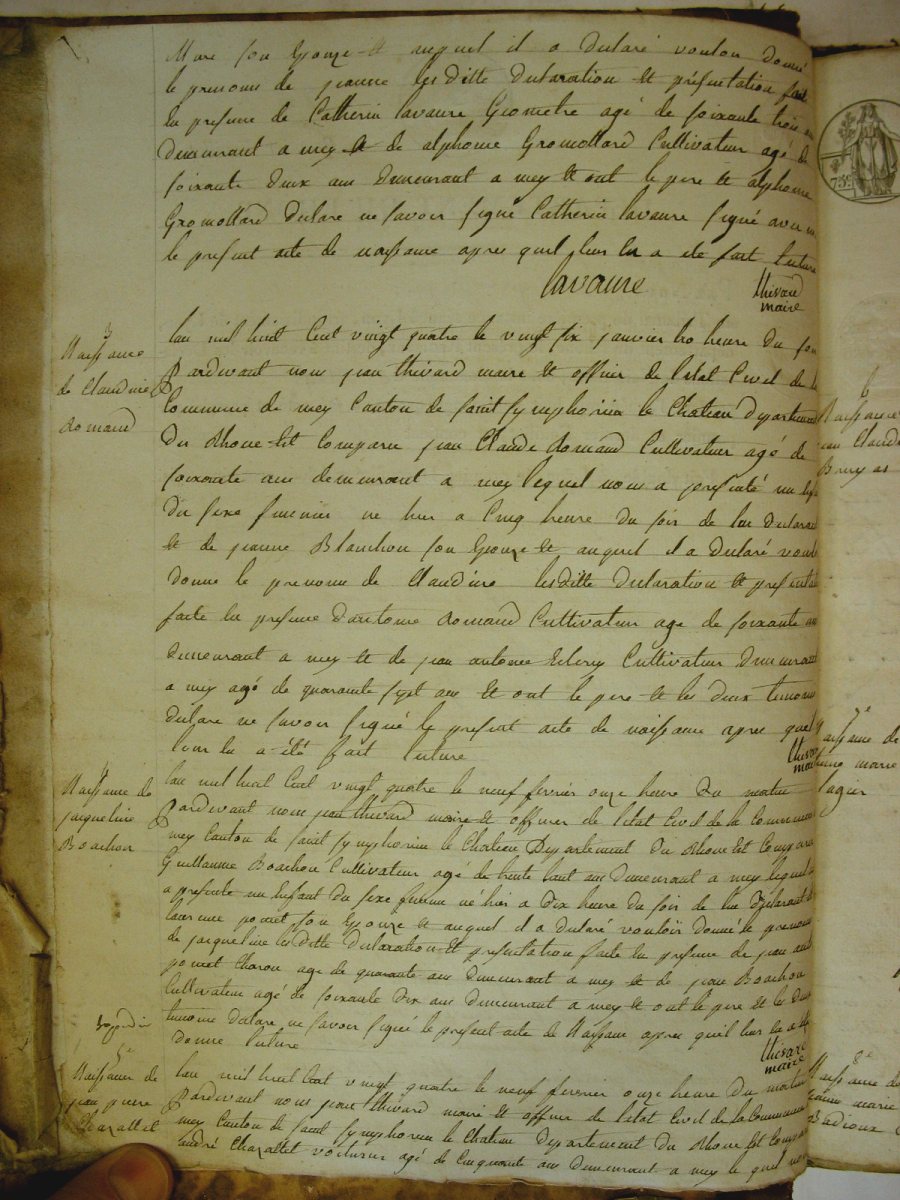 Mure son Epouze et auquel il a declaré vouloir donné
le prenoms de jeanne lesditte declaration et présentation faite
en presence de Catherin lavaure Geometre agé de soixante trois ans
demeurant a mey et de alphonse Gromollard Cultivateur agé de
soixante deux ans demeurant a mey et ont le pere et alphonse
Gromollard declare ne savoir signé Catherin lavaure signé avec
le present acte de naissance apres quil leur en a ete fait lecture
lavaure
thivard
maire
3
Naissance
de Claudine
Romand
lan mil huit Cent vingt quatre le vingt six janvier heure du soir
Pardevant nous jean thivard maire et officier de letat Civil de la
Commune de mey Canton de saint symphorien le Chateau Departement
du Rhone Est Comparu jean Claude Romand Cultivateur agé de
soixante ans demeurant a mey lequel nous a presenté un enfant
du sexe feminin ne hier a Cinq heure du soir de lui declarant
et de jeanne Blanchon son Epouze et auquel il a declaré vouloir
donne le prenoms de Claudine lesditte declaration et presentation
faite en presence dantoine Romand Cultivateur age de soixante ans
demeurant a mey et de jean antoine Cultivateur demeurant
a mey agé de quarante sept ans et ont le pere et les deux temoins
declare ne savoir signé le present acte de naissance apres quil
leur en a été fait lecture
thivard
maire
4
Naissance de
jacqueline
Boachon
lan mil huit Cent vingt quatre le neuf fevrier onze heure du matin
Pardevant nous jean thivard maire et officier de letat Civil de la Commune
mey Canton de saint symphorien le Chateau Departement du Rhone Est Comparu
Guillaume Boachon Cultivateur agé de trente ans demeurant a mey lequel
a presente un Enfant du sexe feminin né hier a Dix heure du soir de lui Déclarant et
son Epouze et auquel il a declaré vouloir donné le prenoms
de jacqueline lesditte declaration et presentation faite en presence de jean
age de quarante ans demeurant a mey et de jean Boachon
Cultivateur agé de soixante Dix ans demeurant a mey et ont le pere et les deux
temoins declare ne savoir signé le present acte de Naissance apres quil leur en a été
donne lecture
thivard
maire
5e
Naissance de
jean pierre
Charattet
lan mil huit Cent vingt quatre le neuf fevrier onze heure du matin
Pardevant nous jean thivard maire et officier de letat Civil de la Commune
mey Canton de saint symphorien le Chateau Departement du Rhone Est Comparu
Charattet voiturier agé de Cinquante ans demeurant a mey lequel nous
75c
6
Naissance
jean Claude
7e
Naissance de
marie
8e
Naissance de
marie